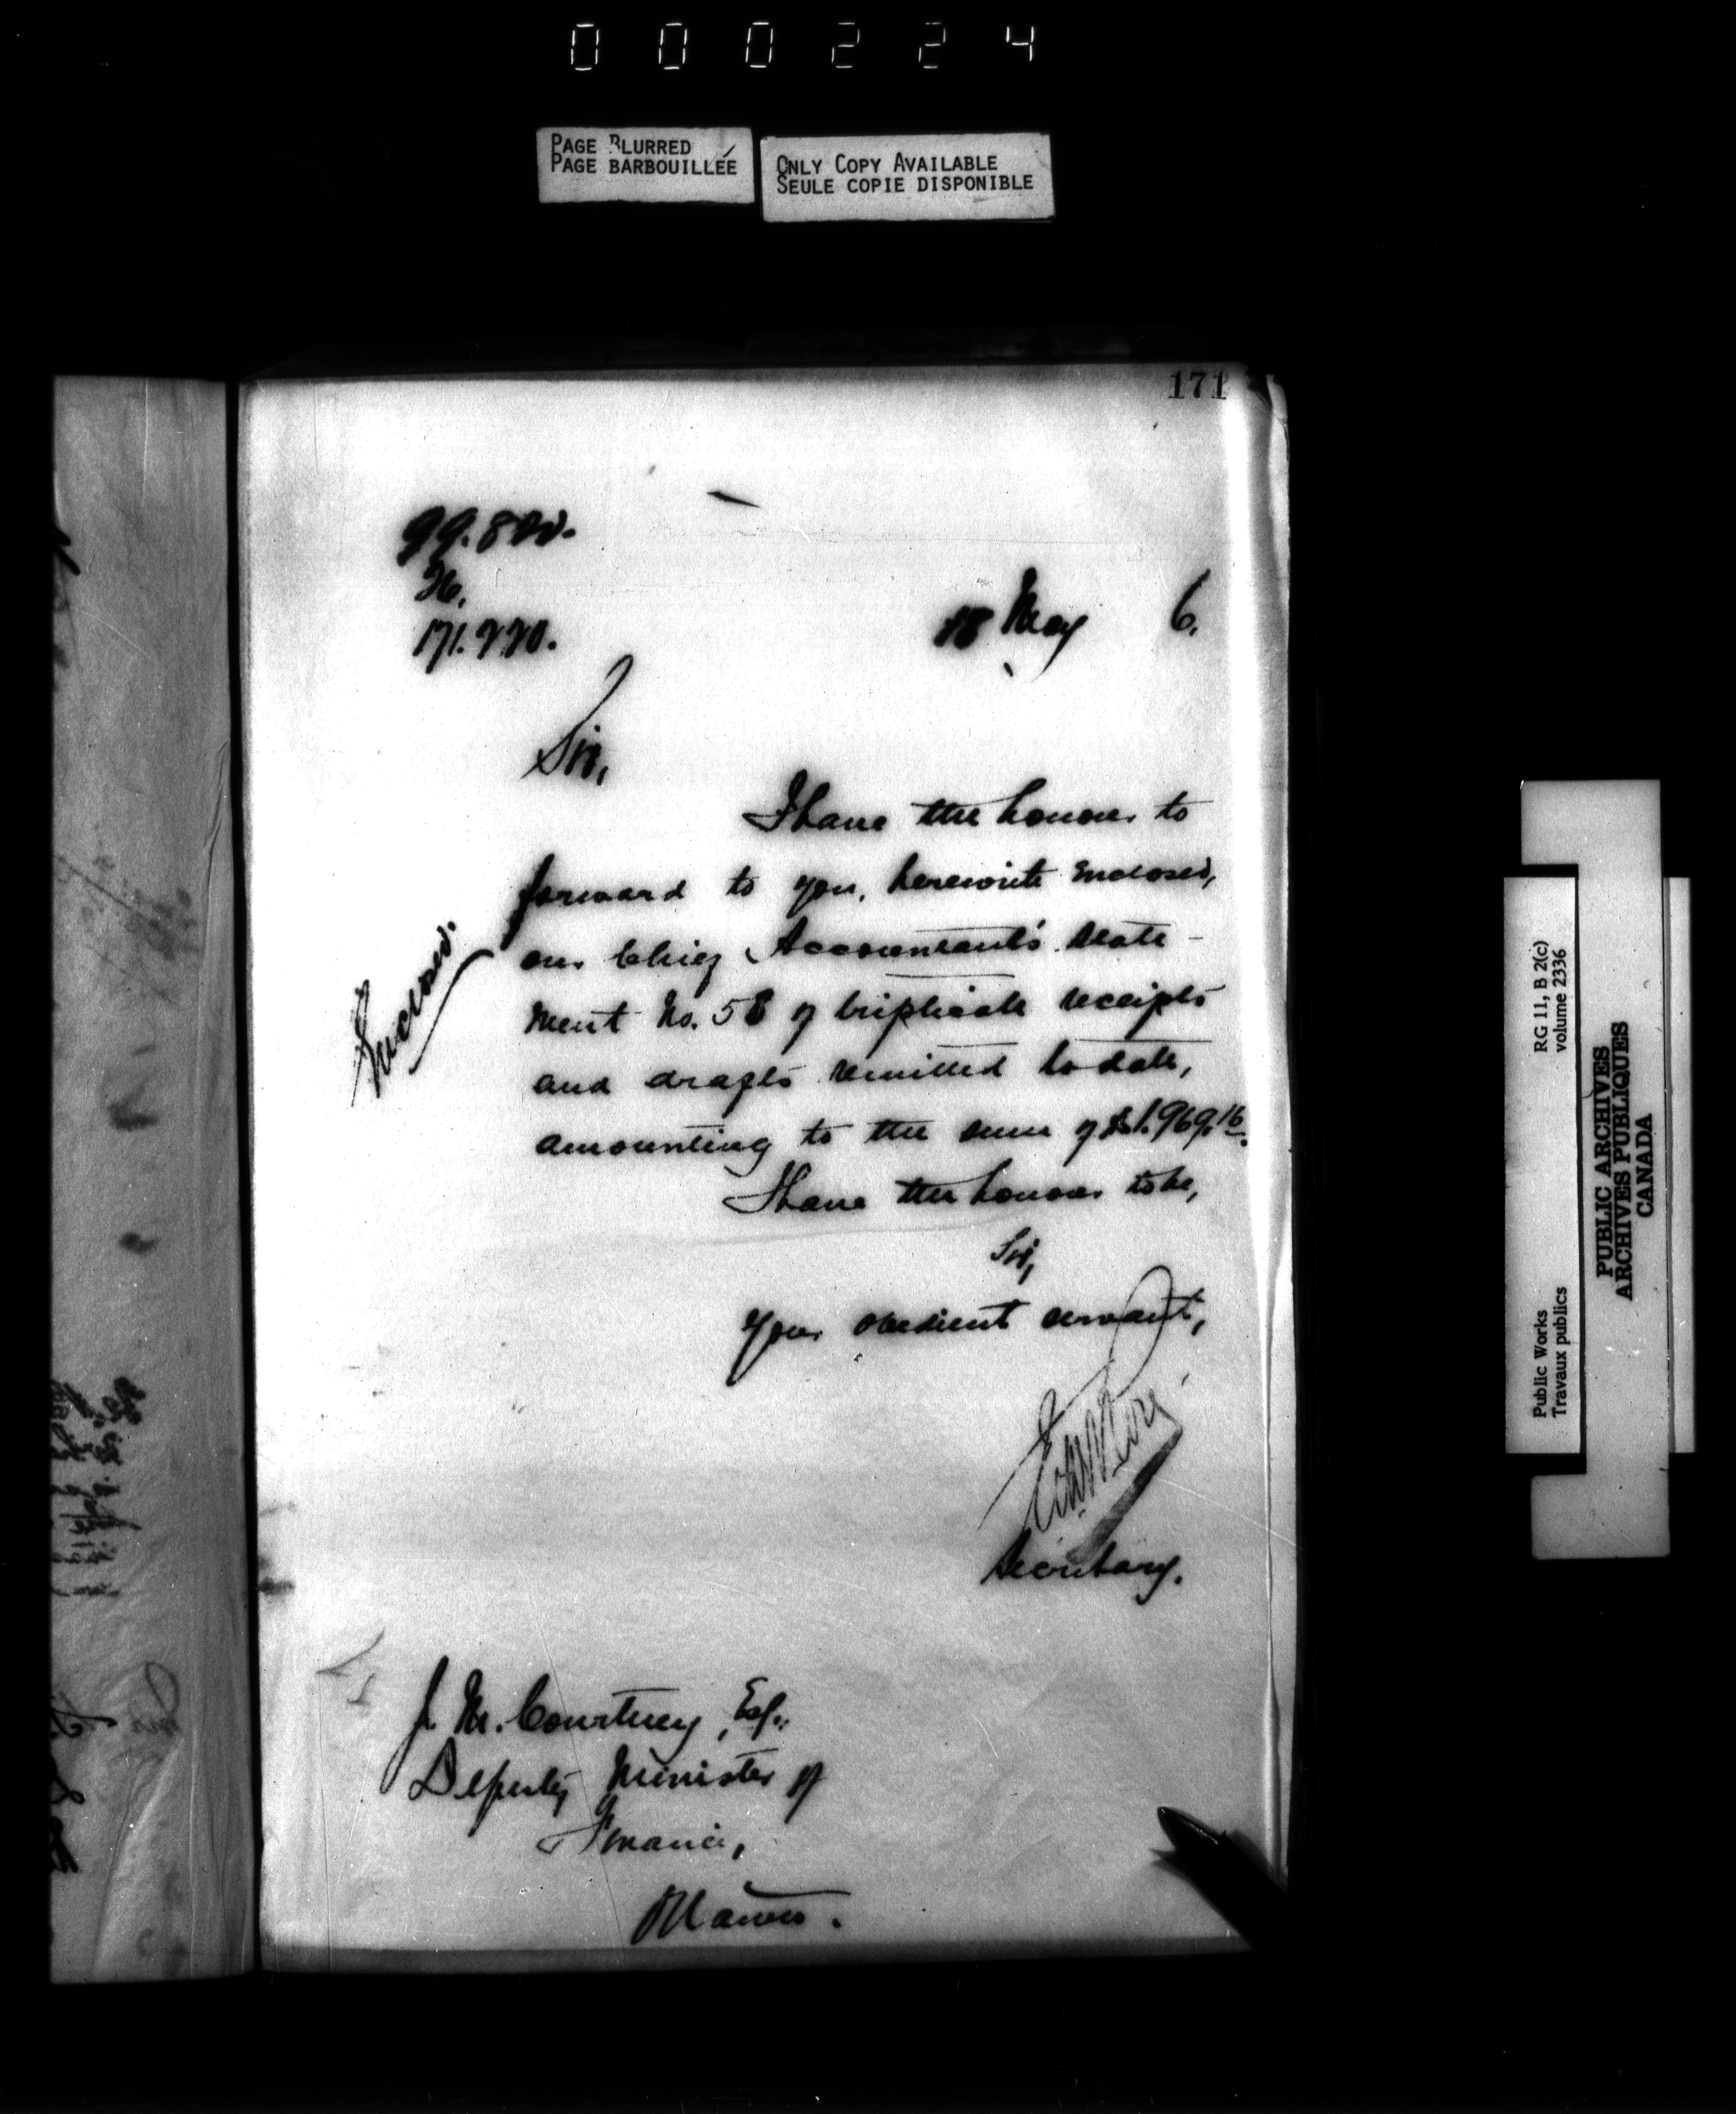 000224
PAGE BLURRED
PAGE BARBOUILLÉE
ONLY COPY AVAILABLE
SEULE COPIE DISPONIBLE
171
18 May 6.
Sir,
I have the honour to
forward to you, herewith enclosed,
our Chief Accountant's State-
ment No. 58 of triplicate receipts
and drafts remitted to date,
amounting to the sum of $1.969.16.
I have the honour to be,
Sir,
Your obedient servant,
Secretary.
J. M. Courtney, Esq.,
Deputy Minister of
Finance,
Ottawa.
RG 11, B 2(c)
volume 2336
Public Works
Travaux publics
PUBLIC ARCHIVES
ARCHIVES PUBLIQUES
CANADA